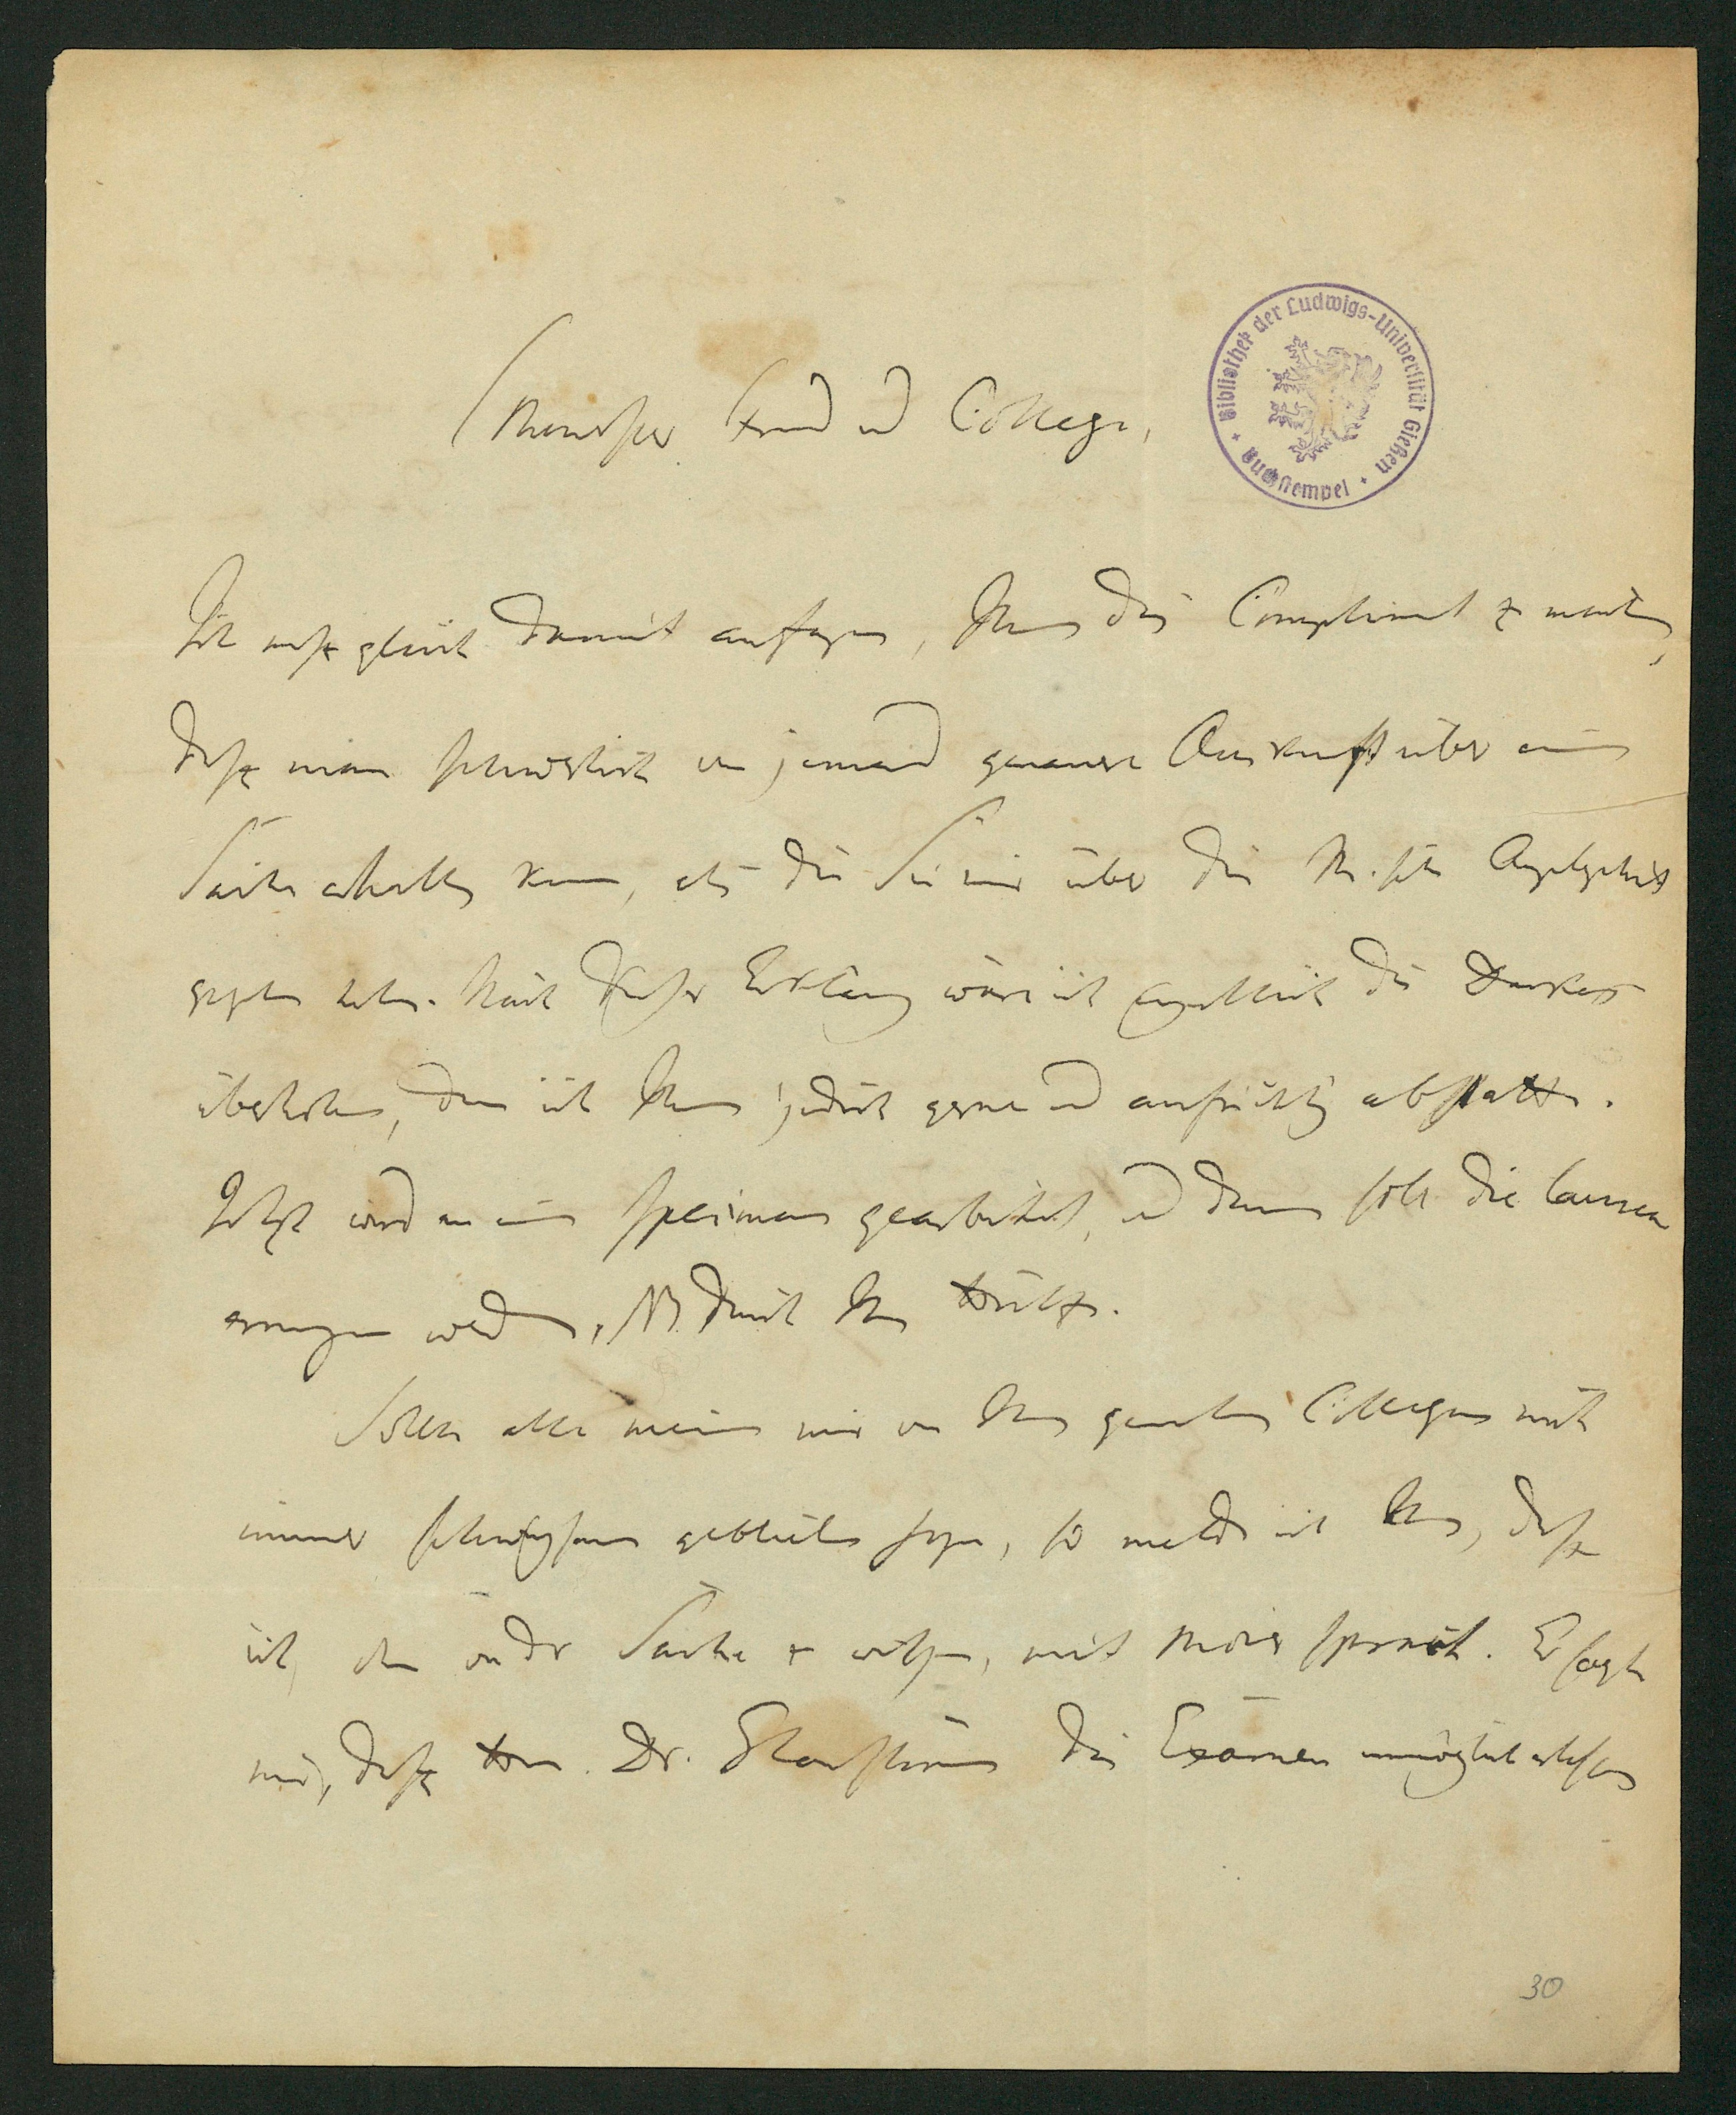 Theuerster Freund und College,
Bibliothek der Ludwigs-Universität Gießen
Buchstempel
Ich muß gleich damit anfangen, Ihnen das Compliment zu machen,
daß man schwerlich von jemand genauere Auskunft über eine
Sache erhalten kann, als die Sie mir über die Angelegenheit
gegeben haben. Nach dieser Erklärung wäre ich eigentlich des Dankes
überhoben, den ich Ihnen jedoch gerne und aufrichtig abstatte.
Jetzt wird an einem specimen gearbeitet, und dann soll die laurea
errungen werden, NB durch Ihre Hülfe.
Sollten alle meine mir von Ihnen genannten Collegen nicht
immer schweigsam geblieben seyn, so melde ich Ihnen, daß
ich, ohne von der Sache zu wissen, mit sprach. Er sagte
mir, daß Herrn Dr. das Examen unmöglich erlassen
30